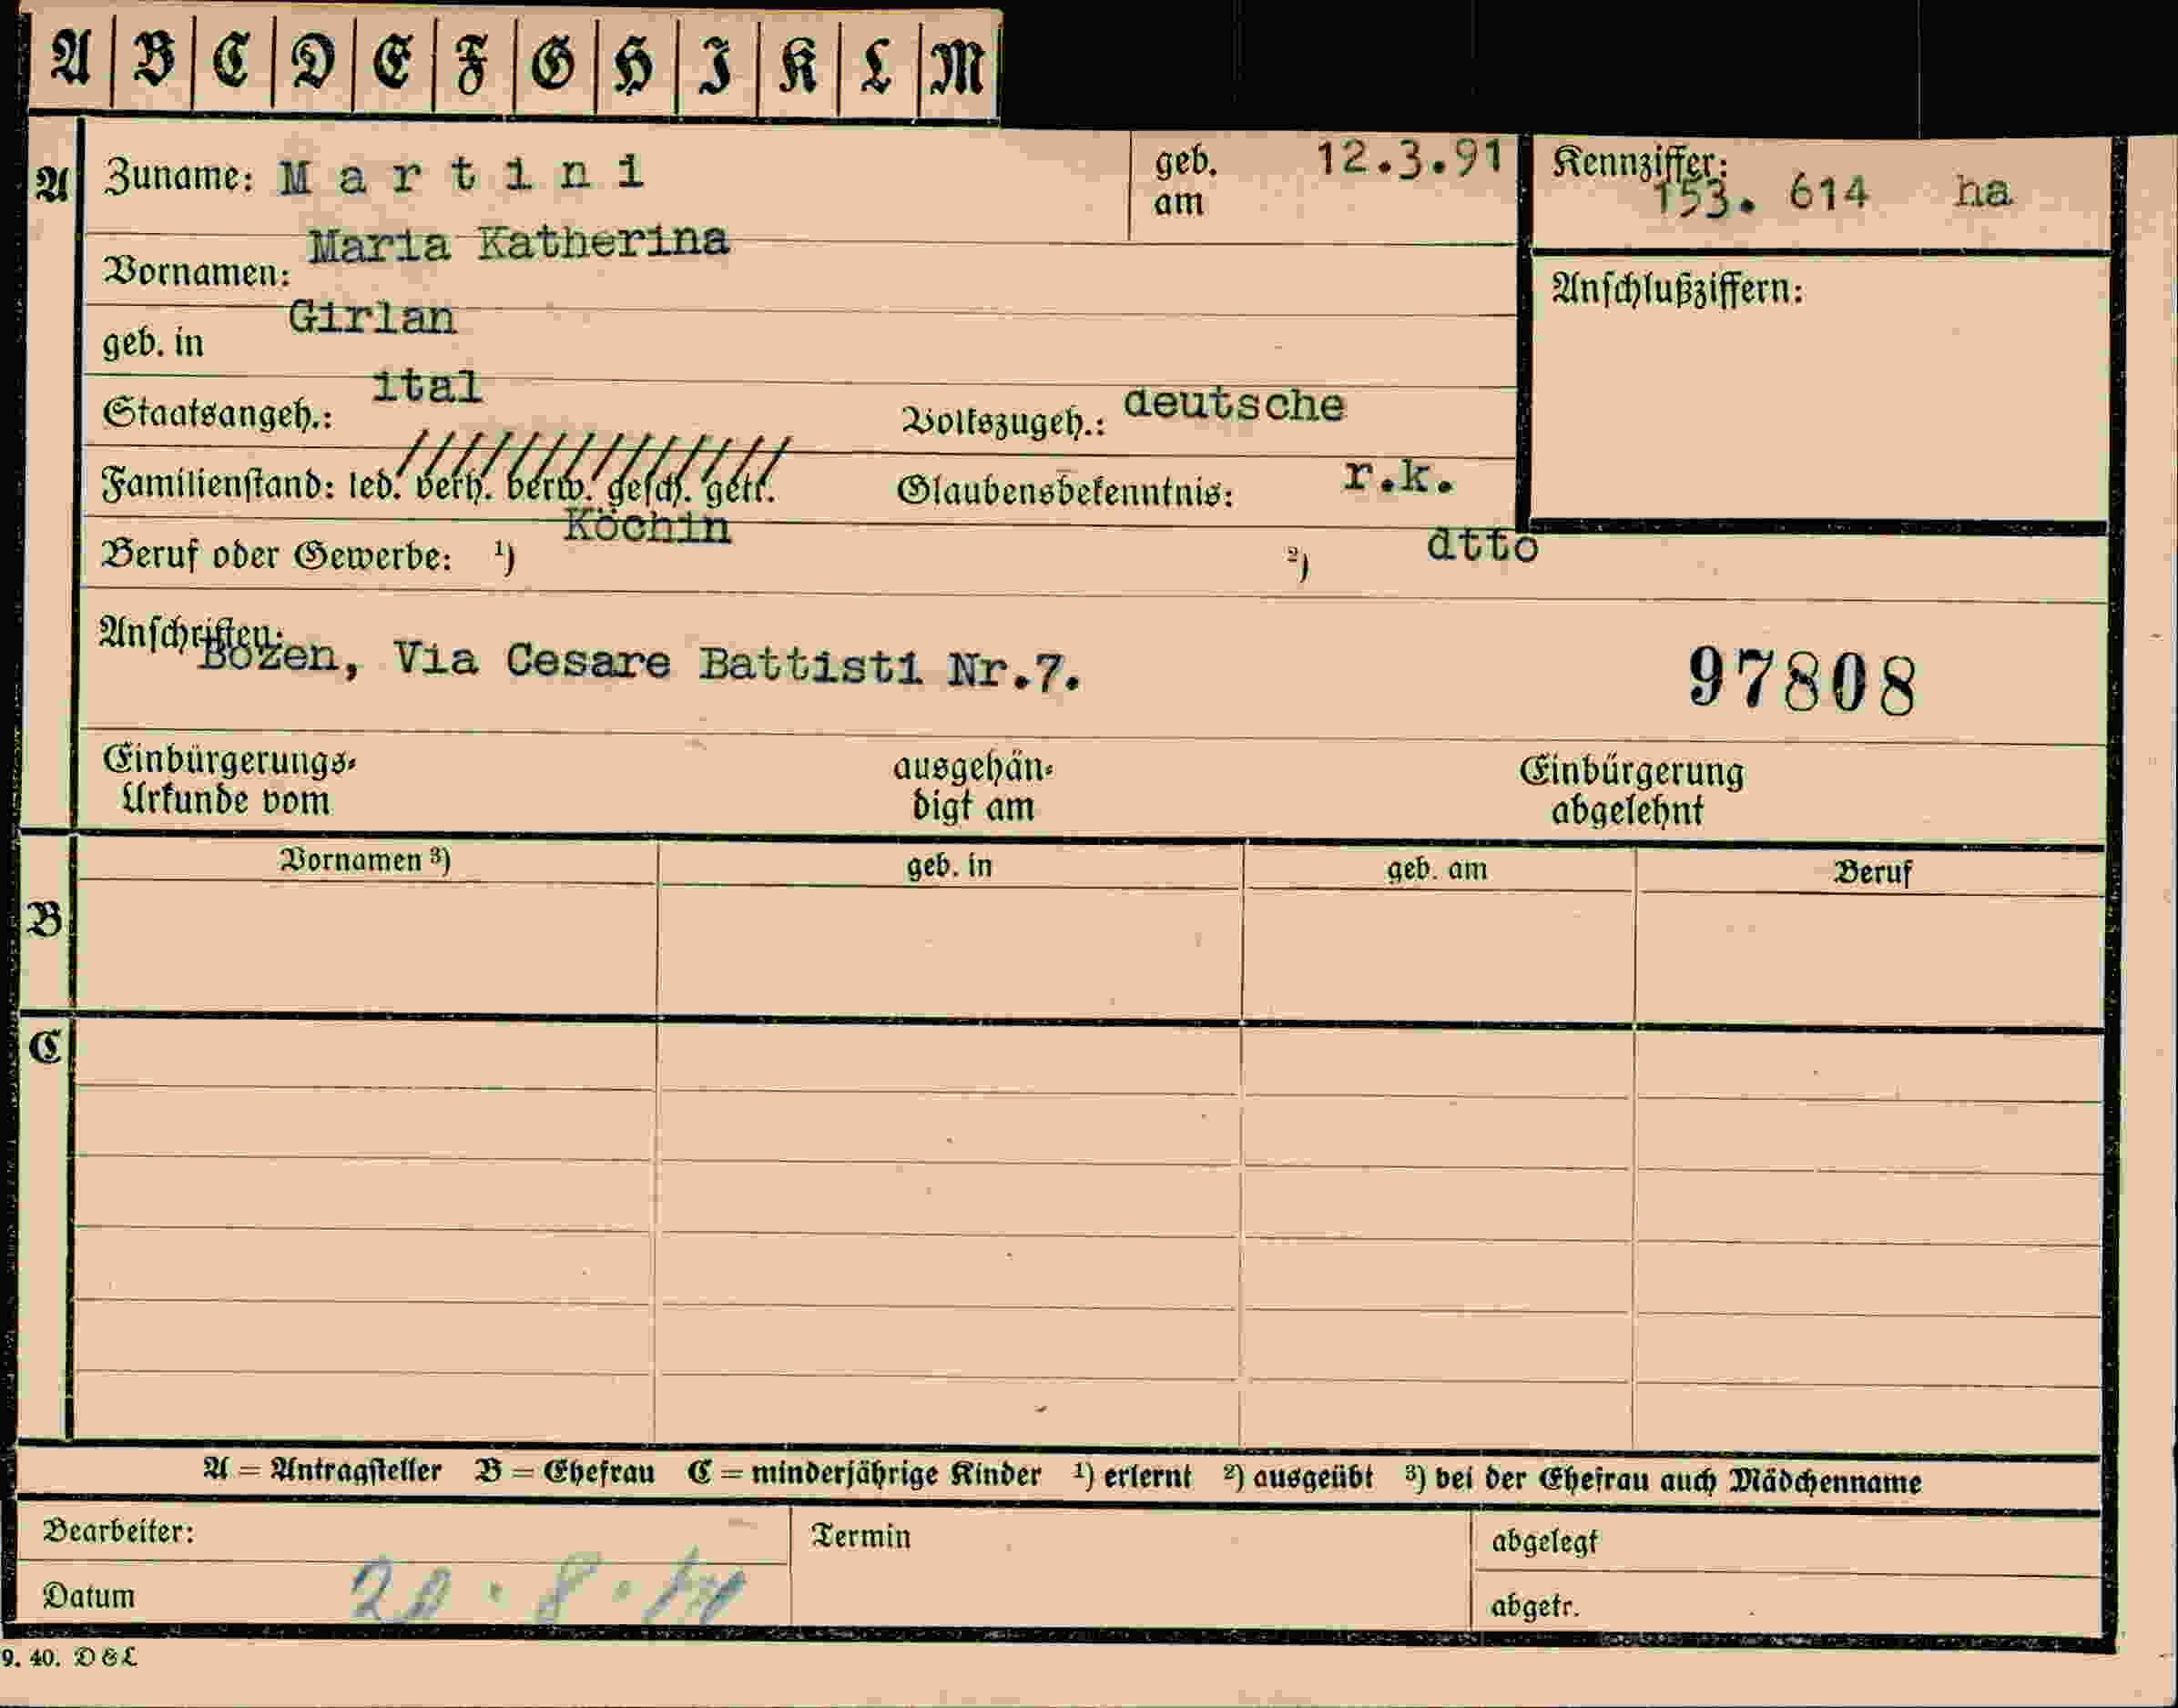 A B C D E F G H I K L M
A Zuname: Martini geb. am 12.3.91 Kennziffer: 153. 614 ha
Vornamen: Maria Katherina Anschlußziffern:
geb. in Girlan
Staatsangeh.: ital Volkszugeh.: deutsche
Familienstand: led. verh. verw. gesch. getr. Glaubensbekenntnis: r.k.
Beruf oder Gewerbe: ¹) Köchin ²) dtto
Anschriften: Bozen, Via Cesare Battisti Nr.7. 97808
Einbürgerungs- ausgehän- Einbürgerung
Urkunde vom digt am abgelehnt
Vornamen ³) geb. in geb. am Beruf
B
C
A = Antragsteller B = Ehefrau C = minderjährige Kinder ¹) erlernt ²) ausgeübt ³) bei der Ehefrau auch Mädchenname
Bearbeiter: Termin abgelegt
Datum abgetr.
9. 40. D & L